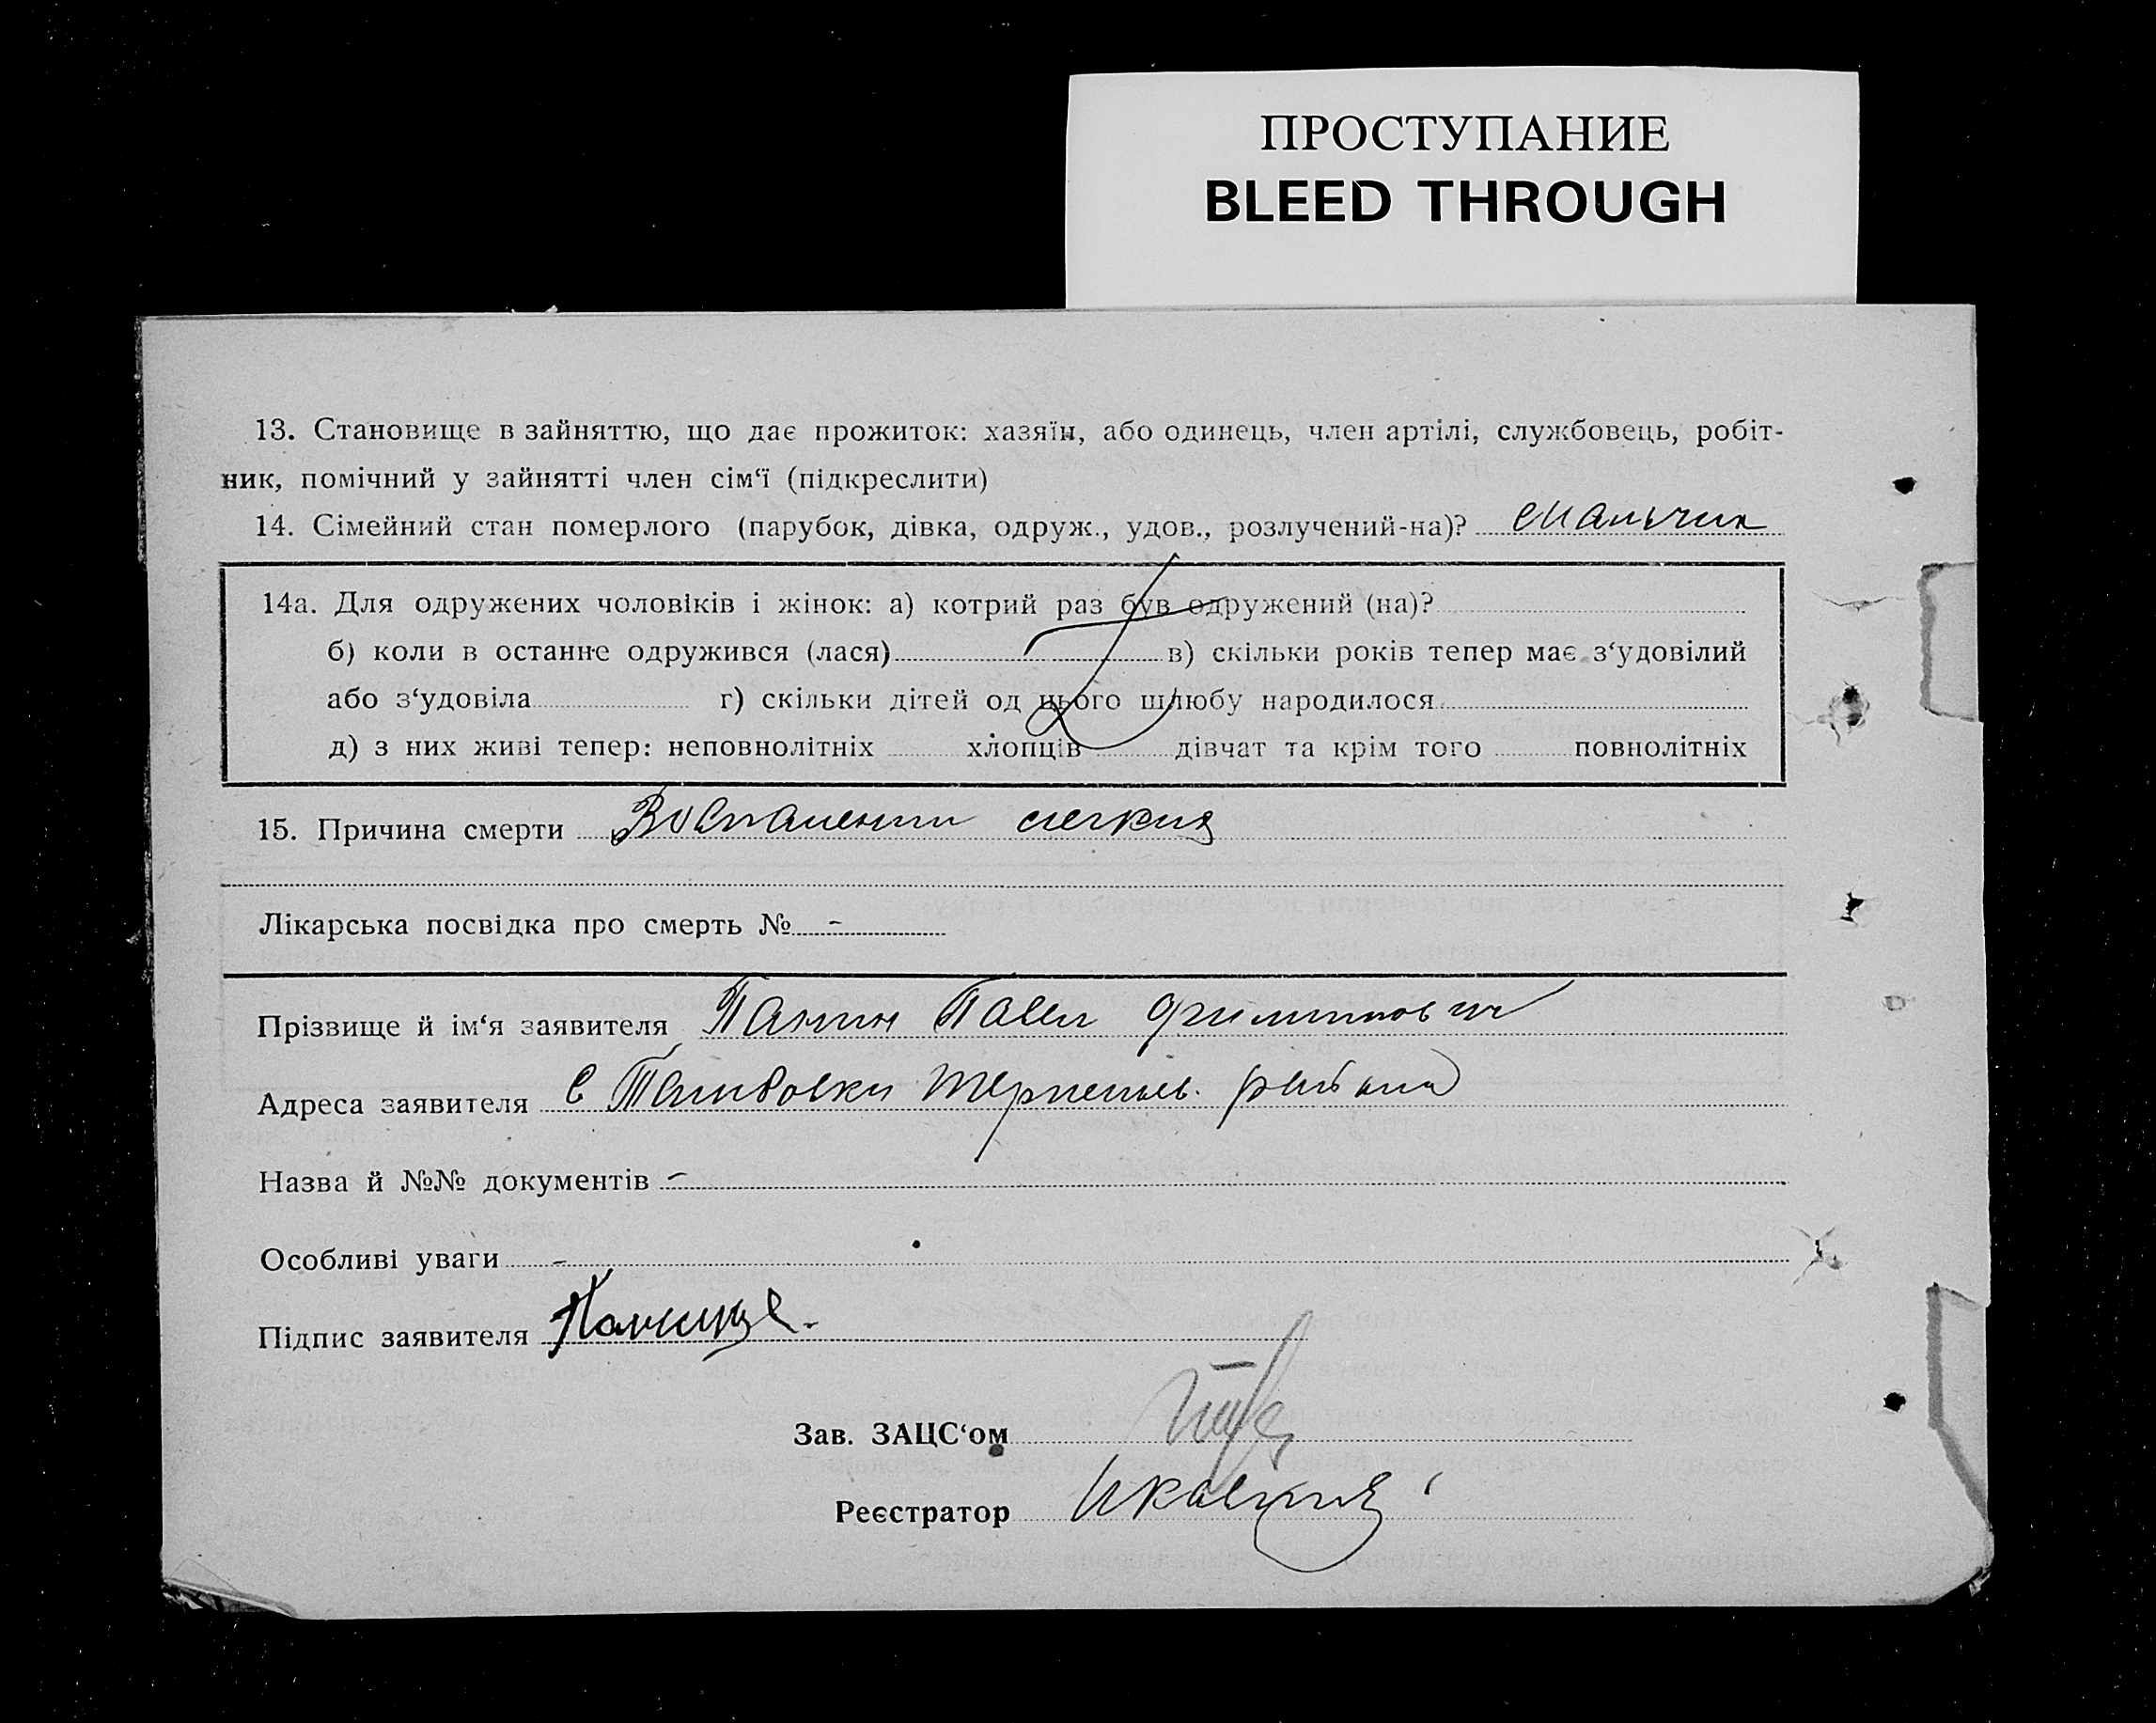 ПРОСТУПАНИЕ
BLEED THROUGH
13. Становище в зайняттю, що дає прожиток: хазяїн, або одинець, член артілі, службовець, робіт-
ник, помічний у зайнятті член сім‘ї (підкреслити)
14. Сімейний стан померлого (парубок, дівка, одруж., удов., розлучений-на)? мальчик
14а. Для одружених чоловіків і жінок: а) котрий раз був одружений (на)?
б) коли в останнє одружився (лася) в) скільки років тепер має з‘удовілий
або з‘удовіла г) скільки дітей од цього шлюбу народилося
д) з них живі тепер: неповнолітніх хлопців дівчат та крім того повнолітніх
15. Причина смерти Воспалении легких
Лікарська посвідка про смерть № -
Прізвище й ім‘я заявителя Панин Павел Филиппович
Адреса заявителя с района
Назва й №№ документів -
Особливі уваги -
Підпис заявителя
Зав. ЗАЦС‘ом
Реєстратор